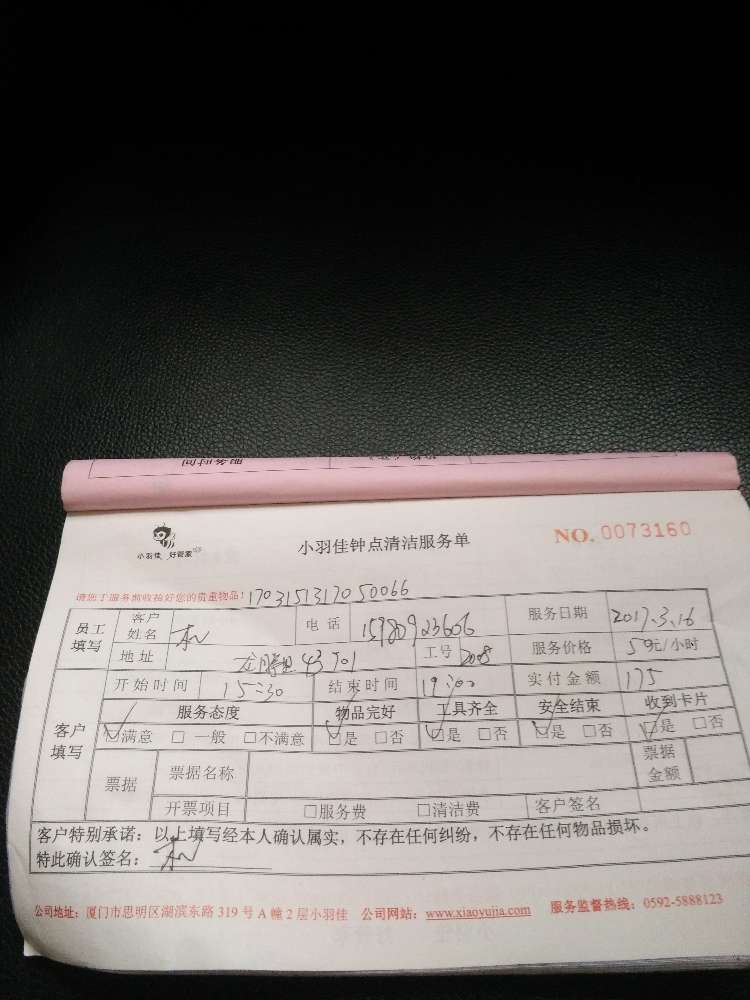 小羽佳 好管家
小羽佳钟点清洁服务单
NO. 0073160
请您于服务前收拾好您的贵重物品! 1703151317050066
员工填写 客户姓名 电话 15980923606 服务日期 2017.3.16
地址 43 701 工号 2008 服务价格 50元/小时
客户填写 开始时间 15:30 结束时间 19:00 实付金额 175
服务态度 物品完好 工具齐全 安全结束 收到卡片
☑满意 □ 一般 □不满意 ☑是 □否 ☑是 □否 ☑是 □否 ☑是 □否
票据 票据名称 票据金额
开票项目 □服务费 □清洁费 客户签名
客户特别承诺：以上填写经本人确认属实，不存在任何纠纷，不存在任何物品损坏。
特此确认签名：
公司地址：厦门市思明区湖滨东路 319 号 A 幢 2 层小羽佳 公司网站：www.xiaoyujia.com 服务监督热线：0592-5888123